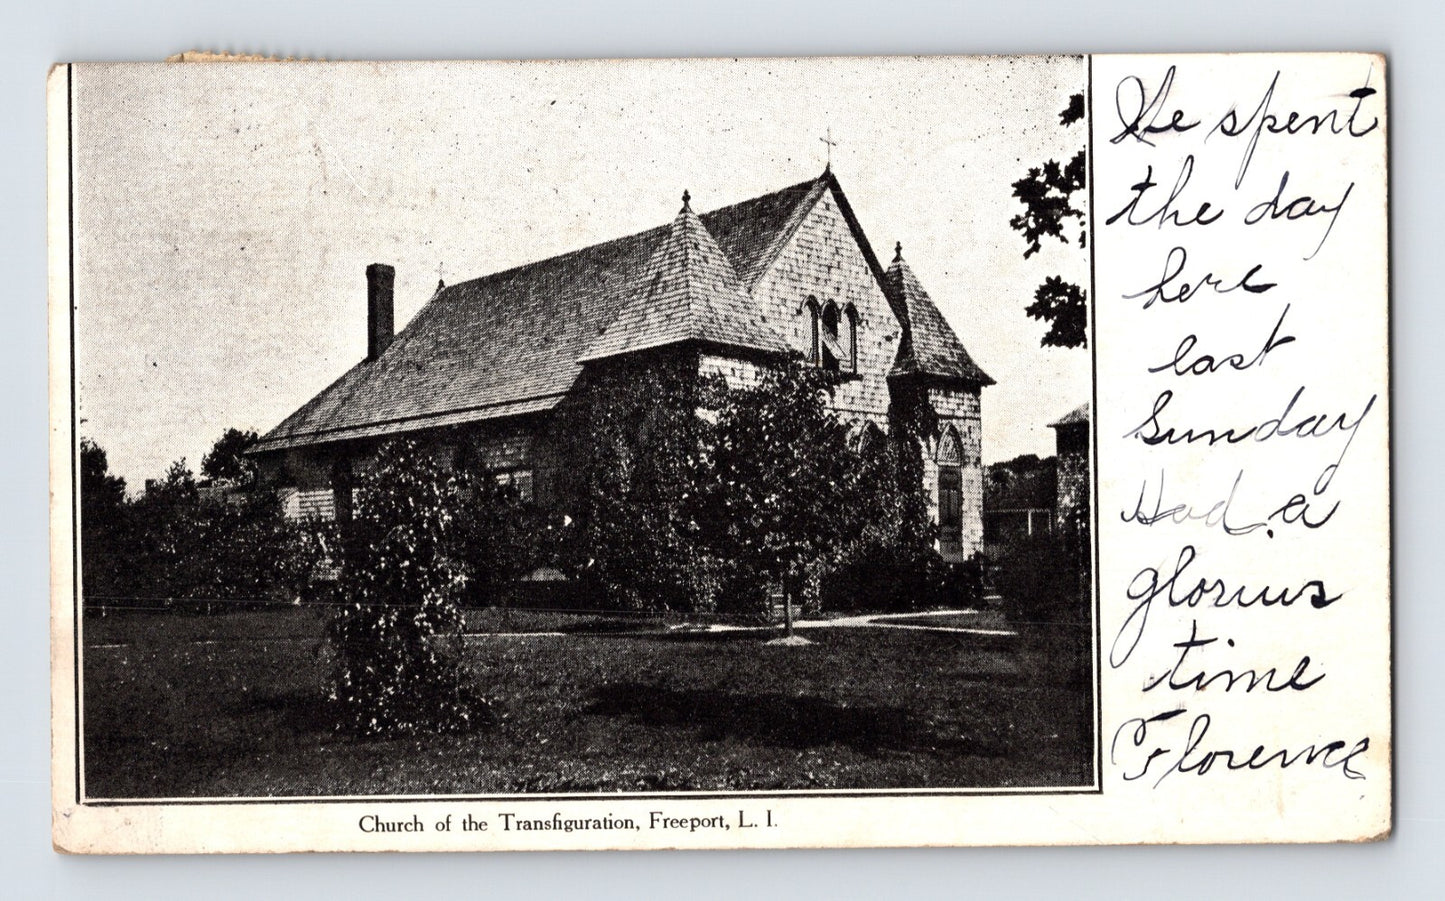 He spent
the day
here
last
Sunday
Had a
glorius
time
Florence
Church of the Transfiguration, Freeport, L. I.